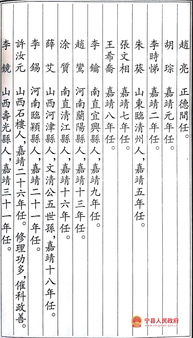 趙亮　正德間任。
胡琮　嘉靖元年任。
李時　嘉靖二年任。
朱葵　山東臨清州人，嘉靖五年任。
張文相　嘉靖七年任。
王希喬　嘉靖八年任。
李鑰　南直宜興縣人，嘉靖九年任。
趙鸞　河南蘭陽縣人，嘉靖十三年任。
涂質　南直清江縣人，嘉靖十六年任。
薛艾　山西河津人，文清公五世孫，嘉靖十八年任。
李錫　河南臨潁縣人，嘉靖二十一年任。
許汝元　山西石樓人，嘉靖二十六年任。修理功多，催科政善。
李鏡　山西壽光縣人，嘉靖三十一年任。
宁县人民政府